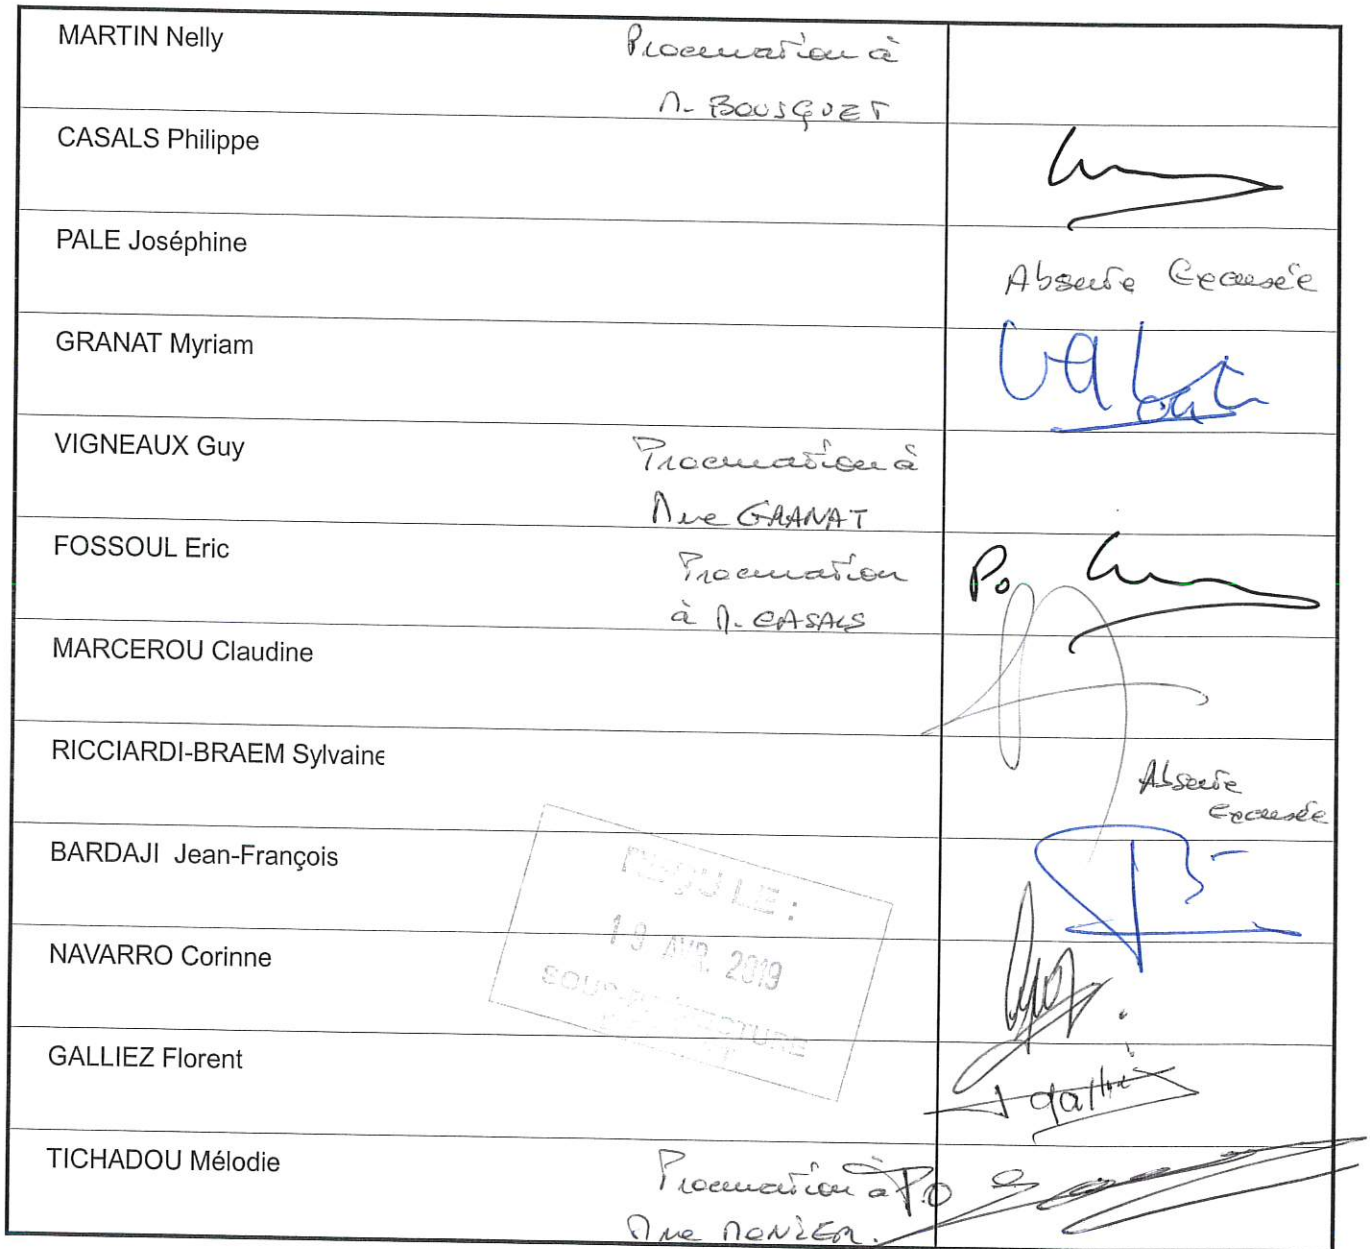 MARTIN Nelly
Procuration à
M. BOUSQUET
CASALS Philippe
PALE Joséphine
Absente Excusée
GRANAT Myriam
VIGNEAUX Guy
Procuration à
Mme GRANAT
FOSSOUL Eric
Procuration
à M. CASALS
Po
MARCEROU Claudine
RICCIARDI-BRAEM Sylvaine
Absente
excusée
BARDAJI Jean-François
REÇU LE :
19 AVR. 2019
SOUS-PRÉFECTURE
NAVARRO Corinne
GALLIEZ Florent
TICHADOU Mélodie
Procuration à
Mme MONIER.
P.O